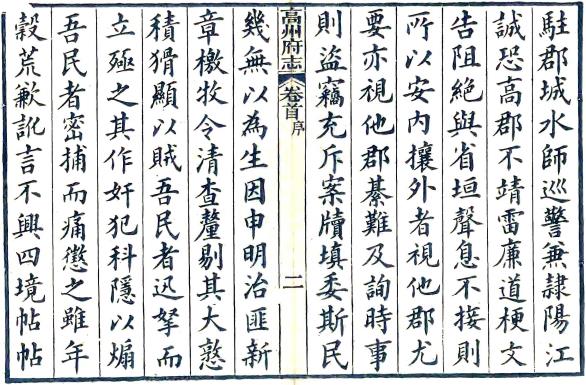 駐郡城水師巡警兼隸陽江
誠恐高郡不靖雷廉道梗文
告阻絶與省垣聲息不接則
所以安内攘外者視他郡尤
要亦視他郡綦難及詢時事
則盜竊充斥案牘填委斯民
高州府志 卷首 序 二
幾無以為生因申明治匪新
章檄牧令清查釐剔其大憝
積猾顯以賊吾民者迅拏而
立殛之其作奸犯科隱以煽
吾民者密捕而痛懲之雖年
穀荒歉訛言不興四境帖帖